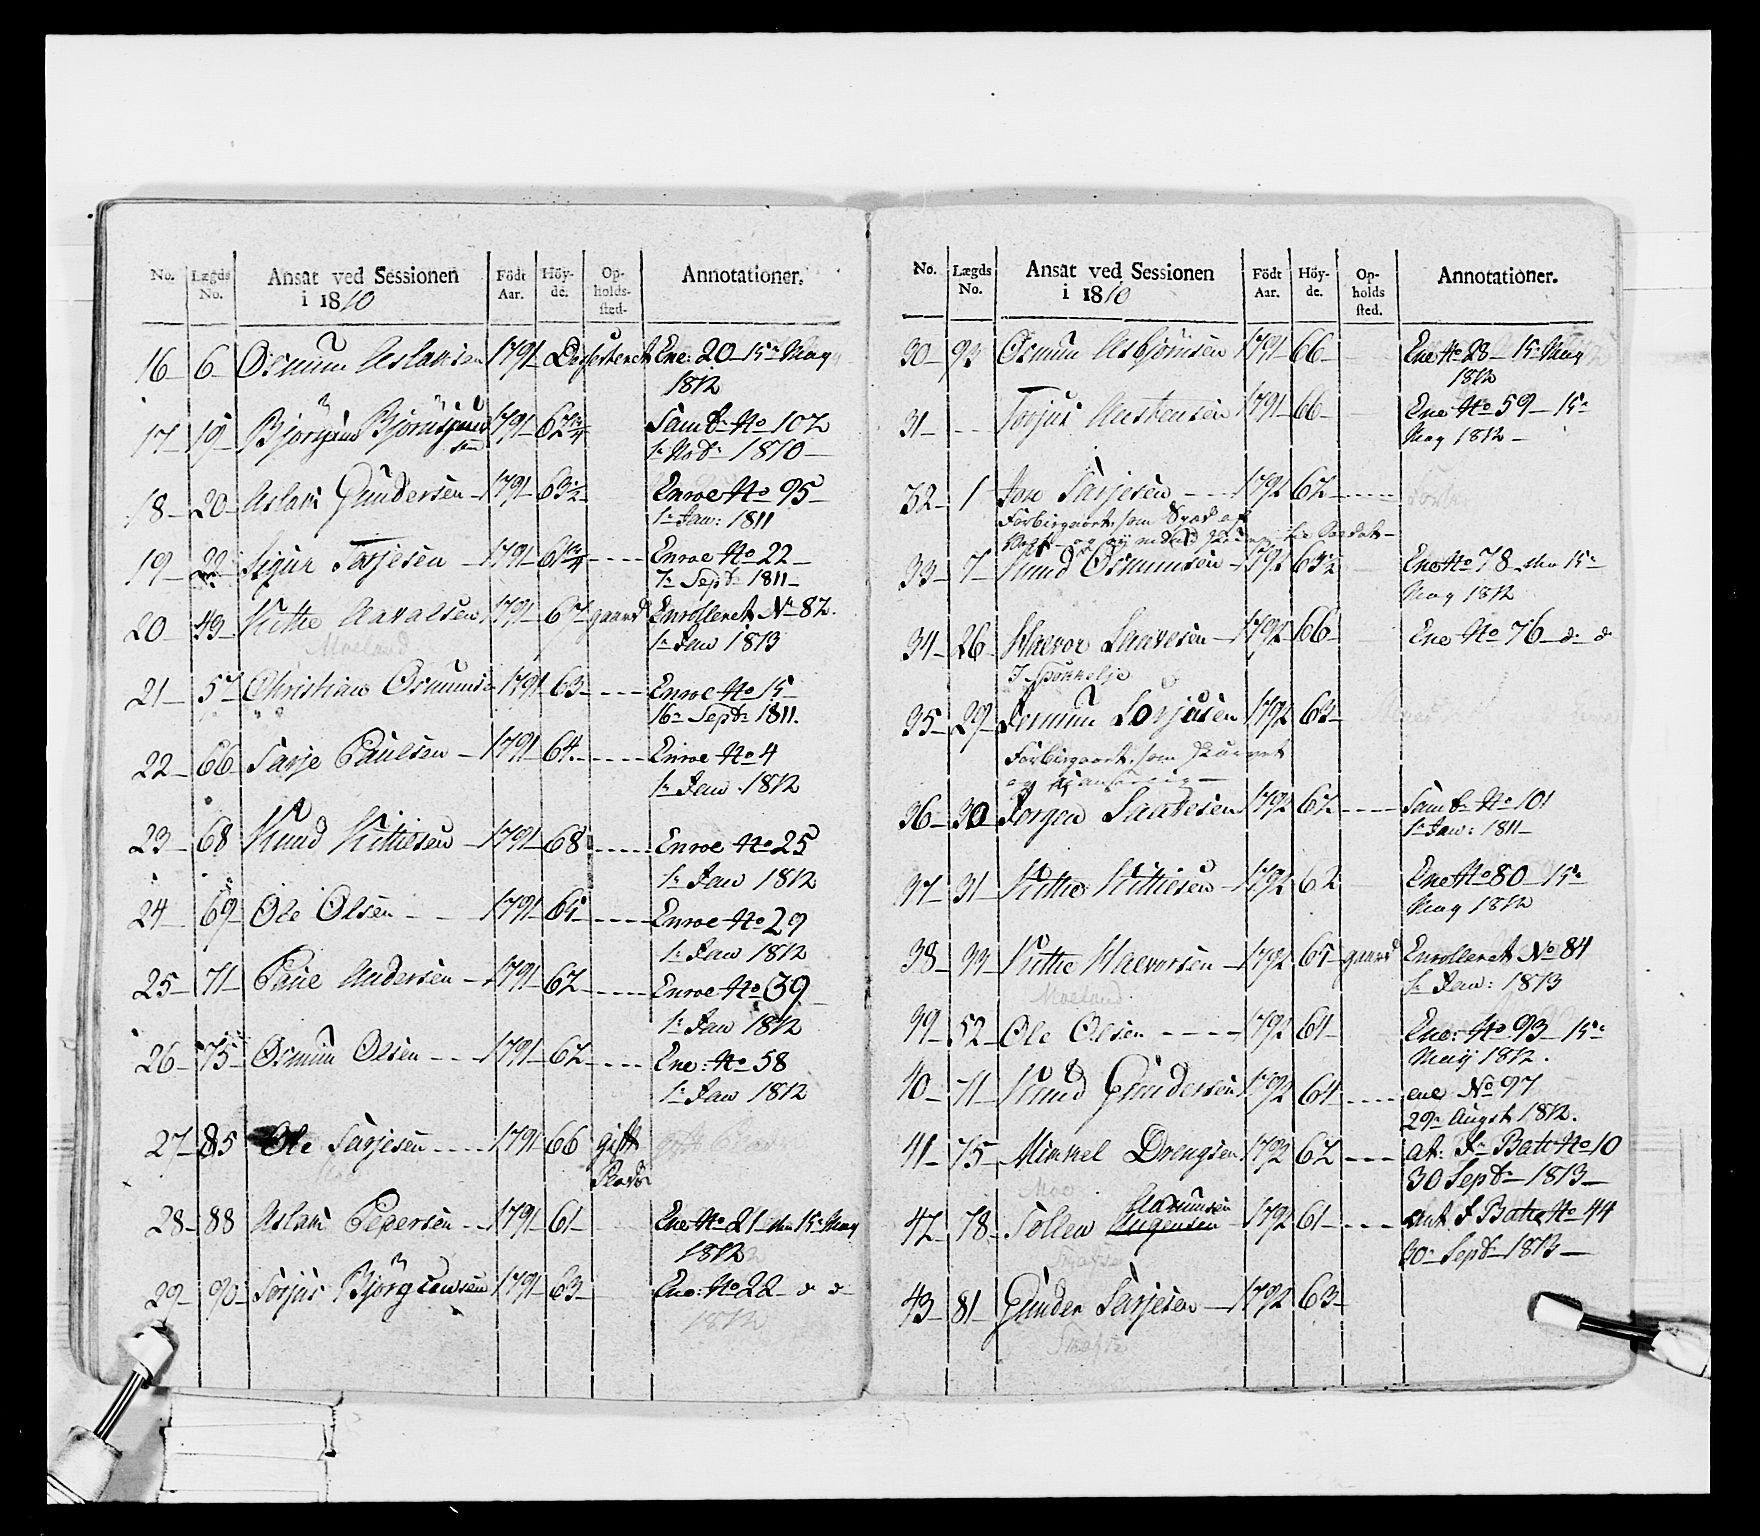 No. Lægds No. Ansat ved Sessionen i 1810 Födt Aar. Höy-de. Op-holds-sted. Annotationer.
16 6 Osmun Aslaksen 1791 Ene: 20 15 May
1812
17 19 Björgun 1791 62 3/4 Samt: No 102
sen 1 Novb: 1810
18 20 Aslak Gundersen 1791 63 1/2 Enroe No 95
1 Jan: 1811
19 22 Sigur Tarjesen 1791 61 3/4 Enroe No 22
7 Septb 1811
20 49 Kittie Aavalsen 1791 67 gaard Enrolleret No 82.
Moeland 1 Jan 1813
21 57 Christian Osmunsen 1791 63 Enroe No 15
16 Septb: 1811.
22 66 Tarje Paulsen 1791 64 Enroe No 4
1 Jan 1812
23 68 Knud Kittiesen 1791 68 Enroe No 25
1 Jan 1812
24 69 Ole Olsen 1791 65 Enroe No 29
1 Jan 1812
25 71 Paul Andersen 1791 62 Enroe No 39
1 Jan 1812
26 75 Osmun Olsen 1791 62 Ene: No 58
1 Jan 1812
27 85 Ole Tarjesen 1791 66 gift
28 88 Aslak Pedersen 1791 61 Ene No 21 15 May
1812
29 90 Torjus 1791 63 Ene: No 22 d d
1812
No. Lægds No. Ansat ved Sessionen i 1810 Födt Aar. Höy-de. Op-holds sted. Annotationer.
30 93 Osmun Asbjörnsen 1791 66 Ene No 28 15 May
1812
31 Torjus Austensen 1791 66 Ene No 59 15
May 1812
32 1 Jon Tarjesen 1792 62
Forbigaaet som
33 7 Knud Osmunsen 1792 63 1/2 Ene No 78 15
May 1812
34 26 Haevor Saavesen 1792 66 Ene No 76 d d
35 29 1792 63
Forbigaaet som
og
36 30 Jorgen Saavesen 1792 62 Samt: No 101
1 Jan: 1811
37 31 Kittie Kittiesen 1792 62 Ene No 80 15
May 1812
38 33 Kittie Haevorsen 1792 65 gaard Enrolleret No 84
Moeland 1 Jan: 1813
39 52 Ole Olsen 1792 61 Ene: No 93 15
May 1812.
40 71 Knud Gundersen 1792 64 ene No 97
29 Augst 1812.
41 75 Mikkel Drengsen 1792 62 at: Batt No 10
Moe 30 Septb 1813
42 78 Tollev 1792 61 ant Batt No 44
30 Septb 1813
43 81 Gunder Tarjesen 1792 63